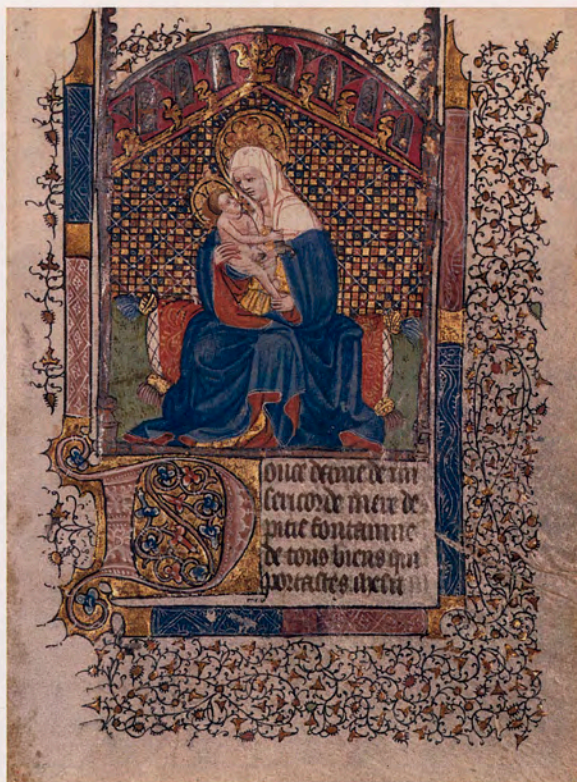 Douce dame de mi
sericorde mere de
pitie fontainne
de tous biens qui
portastes ihesu